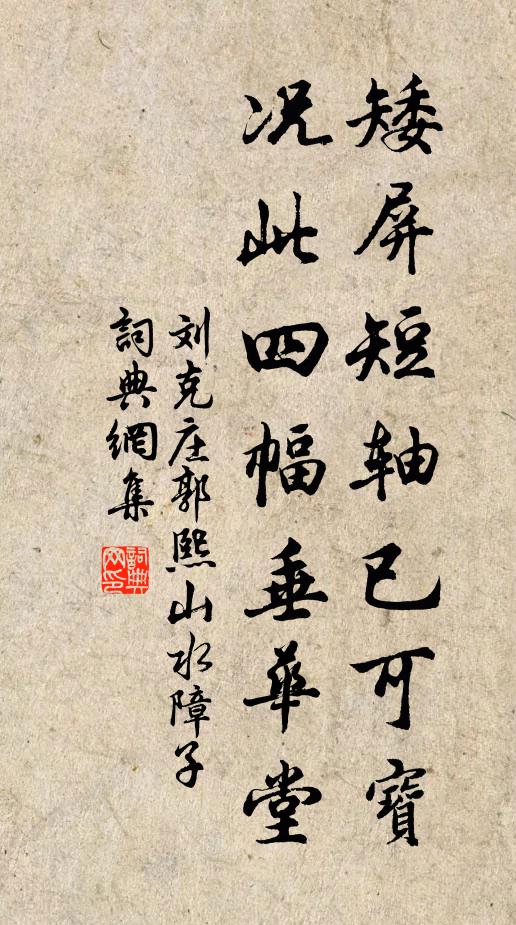 矮屏短轴已可寶
况此四幅垂華堂
刘克庄郭熙山水障子
詞典網集
詞典網印